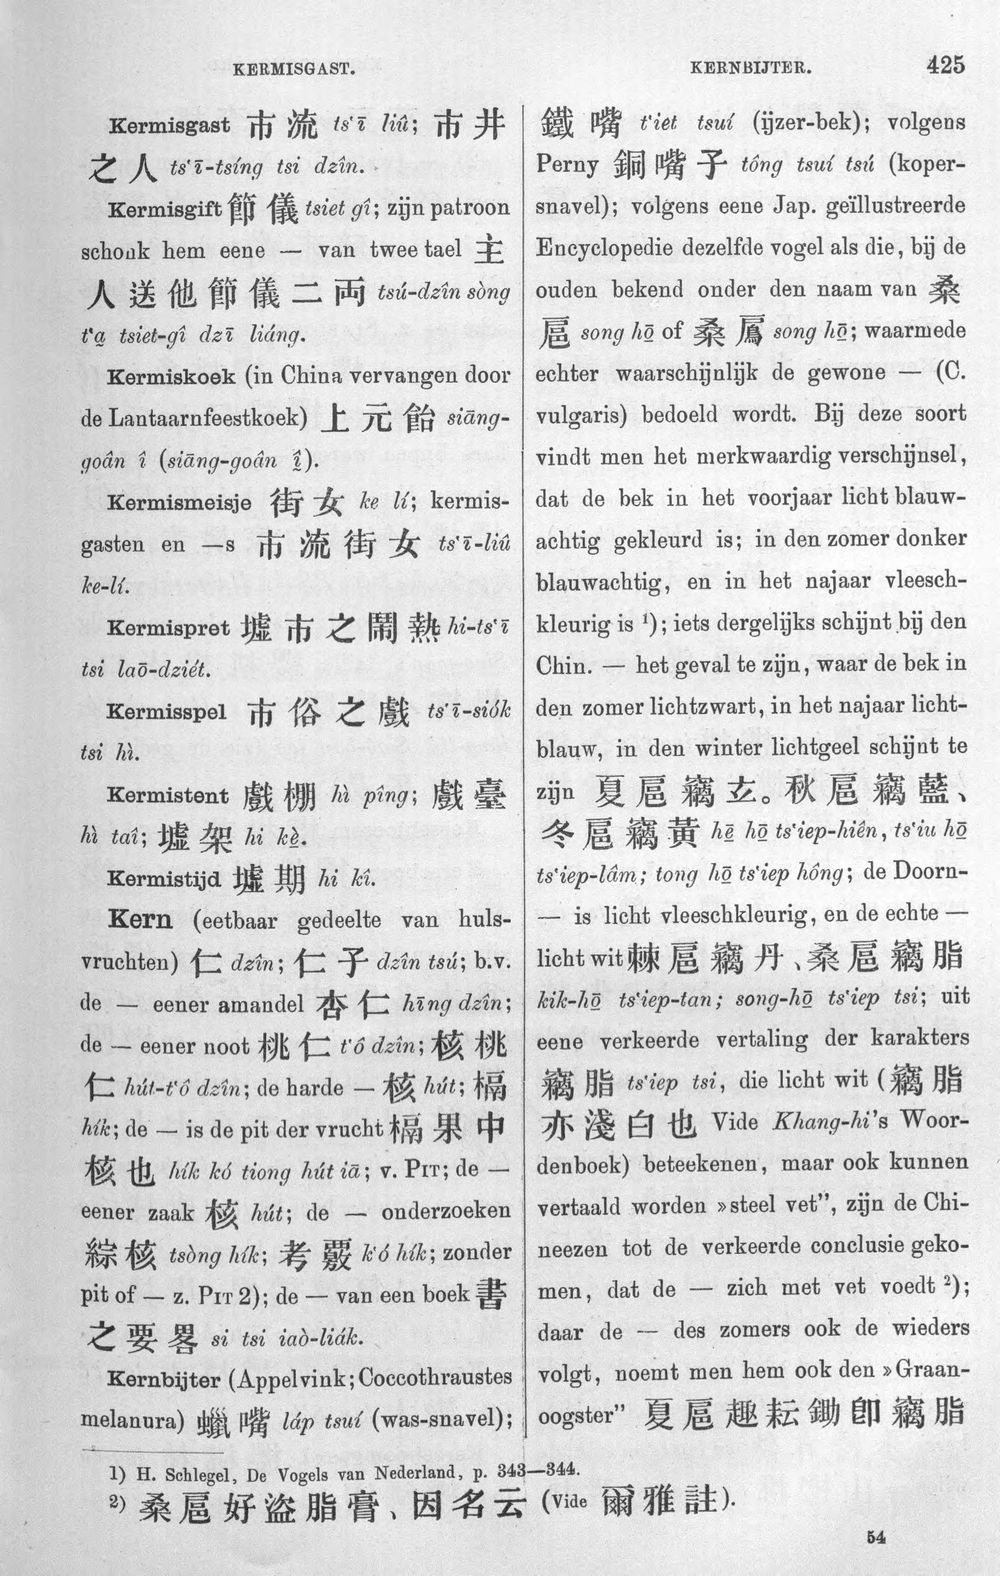 KERMISGAST. KERNBIJTER. 425
Kermisgast 市流 ts‘ī liû; 市井
之人 ts‘ī-tsíng tsi dzîn.
Kermisgift 節儀 tsiet gî; zijn patroon
schonk hem eene — van twee tael 主
人送他節儀二両 tsú-dzîn sòng
t‘a̱ tsiet-gî dzī liáng.
Kermiskoek (in China vervangen door
de Lantaarnfeestkoek) 上元飴 siāng-
goân î (siāng-goân î̱).
Kermismeisje 街女 ke lí; kermis-
gasten en —s 市流街女 ts‘ī-liû
ke-lí.
Kermispret 墟市之鬧熱 hi-ts‘ī
tsi laō-dziét.
Kermisspel 市俗之戲 ts‘ī-siók
tsi hì.
Kermistent 戲棚 hì pîng; 戲臺
hì taî; 墟架 hi kè̱.
Kermistijd 墟期 hi kî.
Kern (eetbaar gedeelte van huls-
vruchten) 仁 dzîn; 仁子 dzîn tsú; b.v.
de — eener amandel 杏仁 hīng dzîn;
de — eener noot 桃仁 t‘ô dzîn; 核桃
仁 hút-t‘ô dzîn; de harde — 核 hút; 槅
hík; de — is de pit der vrucht 槅果中
核也 hík kó tiong hút iā; v. PIT; de —
eener zaak 核 hút; de — onderzoeken
綜核 tsòng hík; 考覈 k‘ó hík; zonder
pit of — z. PIT 2); de — van een boek 書
之要畧 si tsi iaò-liák.
Kernbijter (Appelvink; Coccothraustes
melanura) 蠟嘴 láp tsuí (was-snavel);
鐵嘴 t‘iet tsuí (ijzer-bek); volgens
Perny 銅嘴子 tông tsuí tsú (koper-
snavel); volgens eene Jap. geïllustreerde
Encyclopedie dezelfde vogel als die, bij de
ouden bekend onder den naam van 桑
扈 song hō̱ of 桑鳸 song hō̱; waarmede
echter waarschijnlijk de gewone — (C.
vulgaris) bedoeld wordt. Bij deze soort
vindt men het merkwaardig verschijnsel,
dat de bek in het voorjaar licht blauw-
achtig gekleurd is; in den zomer donker
blauwachtig, en in het najaar vleesch-
kleurig is ¹); iets dergelijks schijnt bij den
Chin. — het geval te zijn, waar de bek in
den zomer lichtzwart, in het najaar licht-
blauw, in den winter lichtgeel schijnt te
zijn 夏扈竊玄。秋扈竊藍、
冬扈竊黃 hē hō̱ ts‘iep-hiên, ts‘iu hō̱
ts‘iep-lâm; tong hō̱ ts‘iep hông; de Doorn-
— is licht vleeschkleurig, en de echte —
licht wit 棘扈竊丹、桑扈竊脂
kik-hō̱ ts‘iep-tan; song-hō̱ ts‘iep tsi; uit
eene verkeerde vertaling der karakters
竊脂 ts‘iep tsi, die licht wit (竊脂
亦淺白也 Vide Khang-hi's Woor-
denboek) beteekenen, maar ook kunnen
vertaald worden »steel vet”, zijn de Chi-
neezen tot de verkeerde conclusie geko-
men, dat de — zich met vet voedt ²);
daar de — des zomers ook de wieders
volgt, noemt men hem ook den »Graan-
oogster” 夏扈趣耘鋤卽竊脂
1) H. Schlegel, De Vogels van Nederland, p. 343—344.
2) 桑扈好盜脂膏、因名云 (Vide 爾雅註).
54